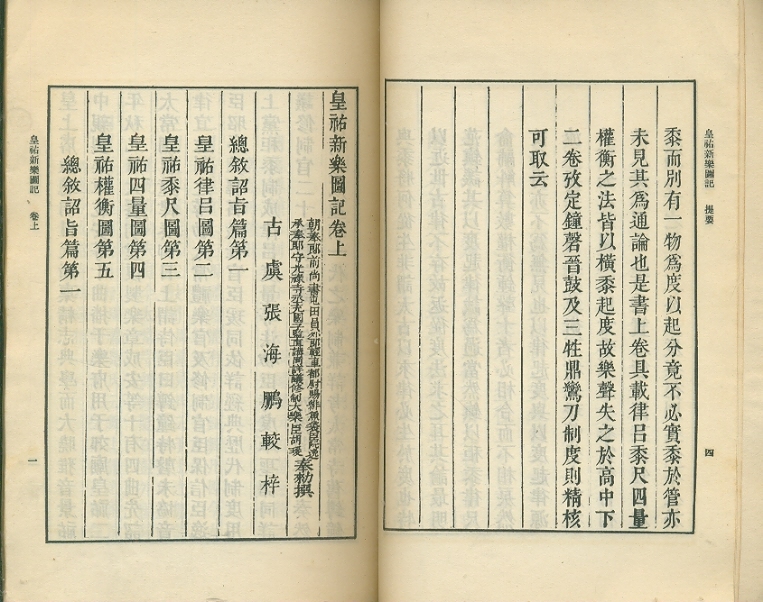 皇祐新樂圖記 提要
四
黍而別有一物爲度以起分竟不必實黍於管亦
未見其爲通論也是書上卷具載律呂黍尺四量
權衡之法皆以橫黍起度故樂聲失之於高中下
二卷攷定鐘磬晉鼓及三牲鼎鸞刀制度則精核
可取云
皇祐新樂圖記卷上
朝奉郎前尚書屯田員外郎輕車都尉賜緋魚袋臣阮逸
承奉郎守光祿寺丞充國子監直講同詳議修制大樂臣胡瑗
奉勅撰
古虞張海鵬較梓
總敘詔旨篇第一
皇祐律呂圖第二
皇祐黍尺圖第三
皇祐四量圖第四
皇祐權衡圖第五
總敘詔旨篇第一
皇祐新樂圖記 卷上
一